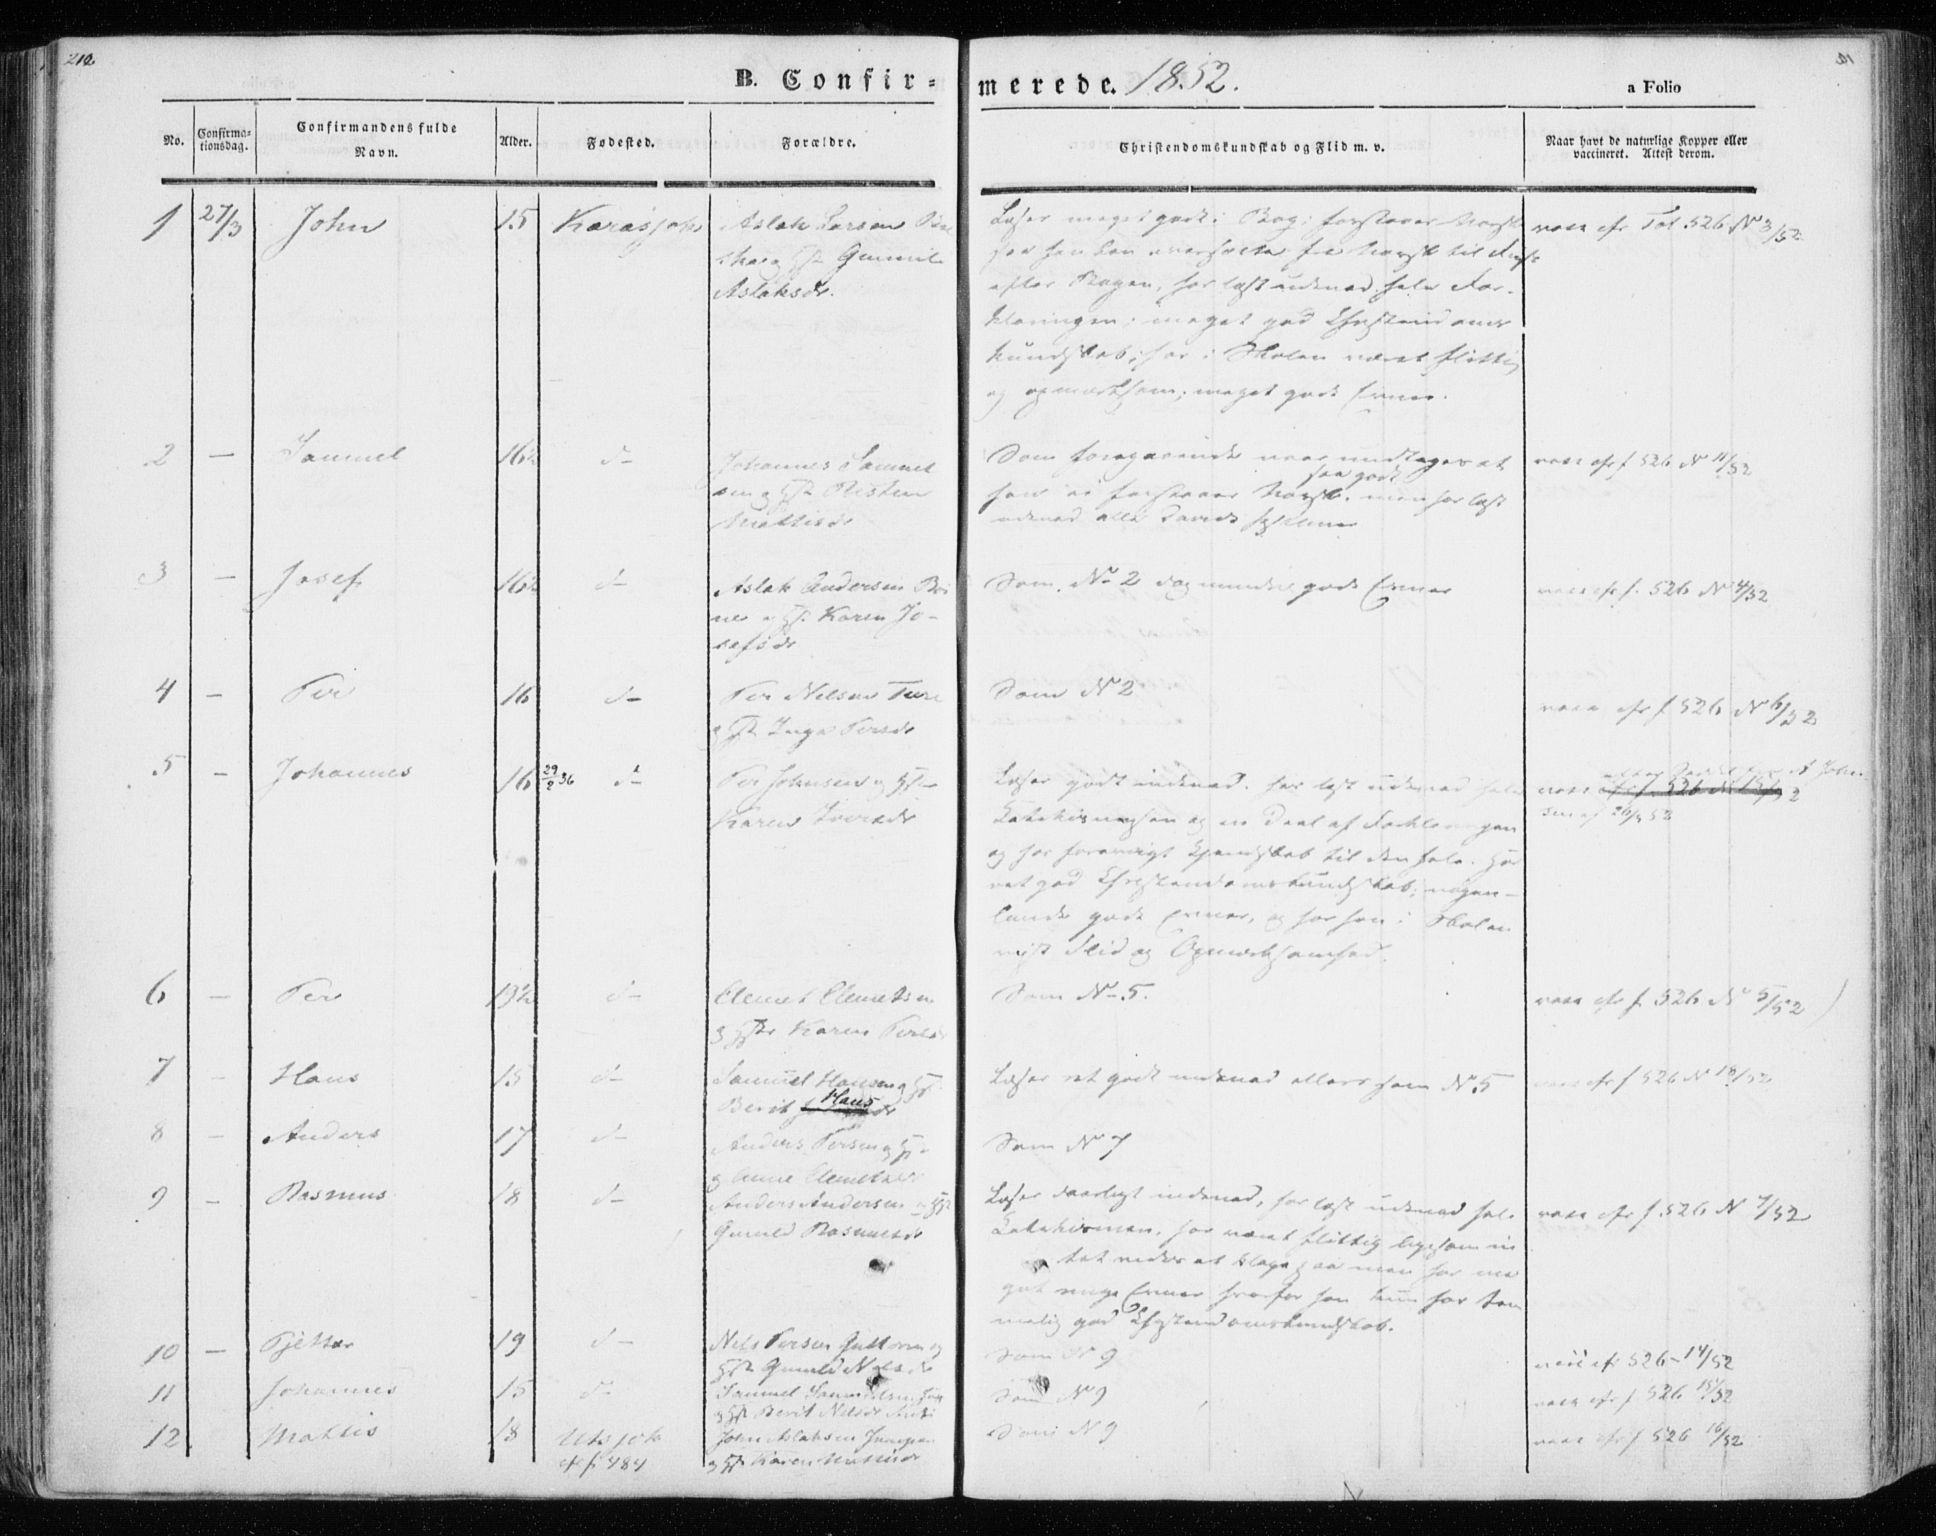 212
B. Confir-
merede. 1852.
a Folio
No.
Confirma-
tionsdag.
Confirmandens fulde
Navn.
Alder.
Fødested.
Forældre.
Christendomskundskab og Flid m. v.
Naar havt de naturlige Kopper eller
vaccineret. Attest derom.
1 27/3 John 15 Karasjok Aslak Larsen
Gunnild
Aslaksdr.
Læser meget godt i Bog; forstaaer Norsk
saa han kan oversætte fra Norsk til
efter Bogen, har læst udenad hele For-
klaringen; meget god Christendoms
kundskab; har i Skolen været flittig
og opmærksom; meget gode Evner.
vacc cfr Fol. 526 N 3/52
2 — Samuel 16½ d— Johannes Samuel
sen og Hst Risten
Mattisdr
Som foregaaende naar undtages at
saa godt
han ei forstaaer Norsk. men har læst
udenad alle Davids Psalmer
vacc cfr f 526 N 11/52
3 — Josef 16½ d— Aslak Andersen
og Hst. Karen Jo-
sefsdr
Som No 2 dog mindre gode Evner
vacc cfr f. 526 N 4/52
4 — Per 16 d— Per Nilsen
og Hst Inga Persdr
Som No 2
vacc cfr f 526 No 6/52
5 — Johannes 16 29/2 36 d— Per Johnsen og Hst
Karen Iversdr
Læser godt indenad. har læst udenad hele
Katekismusen og en Deel af Forklaringen
og har forøvrigt Kjendskab til den hele. Har
ret god Christendomskundskab; nogen-
lunde gode Evner, og har han i Skolen
viist Flid og Opmærksomhed.
John
vacc cfr f. 526
sen af 26/3 52
6 — Per 19½ d— Clemet Clemetsen
og Hst Karen Persdr
Som No 5.
vacc cfr f 526 No 5/52
7 — Hans 15 d— Samuel Hansen og Hst
Hans
Berit dr
Læser ret godt indenad ellers som No 5
vacc cfr f 526 N 13/52
8 — Anders 17 d— Anders Persen og Hst
og Anne Clemetsdr
Som No 7
9 — Rasmus 18 d— Anders Andersen og Hst
Gunild Rasmusdr
Læser daarligt indenad, har læst udenad hele
Katekismen, har været flittig ligesom in
tet vides at klage paa men har me
get ringe Evner hvorfor han kun har tem
melig god Christendomskundskab.
vacc cfr f. 526 N 7/52
10 — Pjetter 19 d— Nils Persen Guttorm og
Hst Gunild Nilsdr
Som No 9
vacc cf 526 - 14/52
11 Johannes 15 d— Samuel Samuelsen
og Hst Berit Nilsdr
Som No 9
vacc cfr f 526 15/52
12 Mattis 18 Utsjok
cf f 484
John Aslaksen
og Hst Karen Mattisdr
Som N 9
vacc cfr f 526 16/52